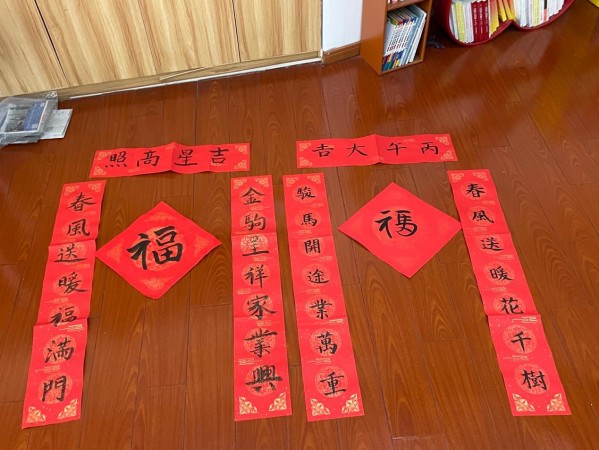 吉星高照
金駒呈祥家業興
春風送暖福滿門
福
丙午大吉
春風送暖花千樹
駿馬開途業萬重